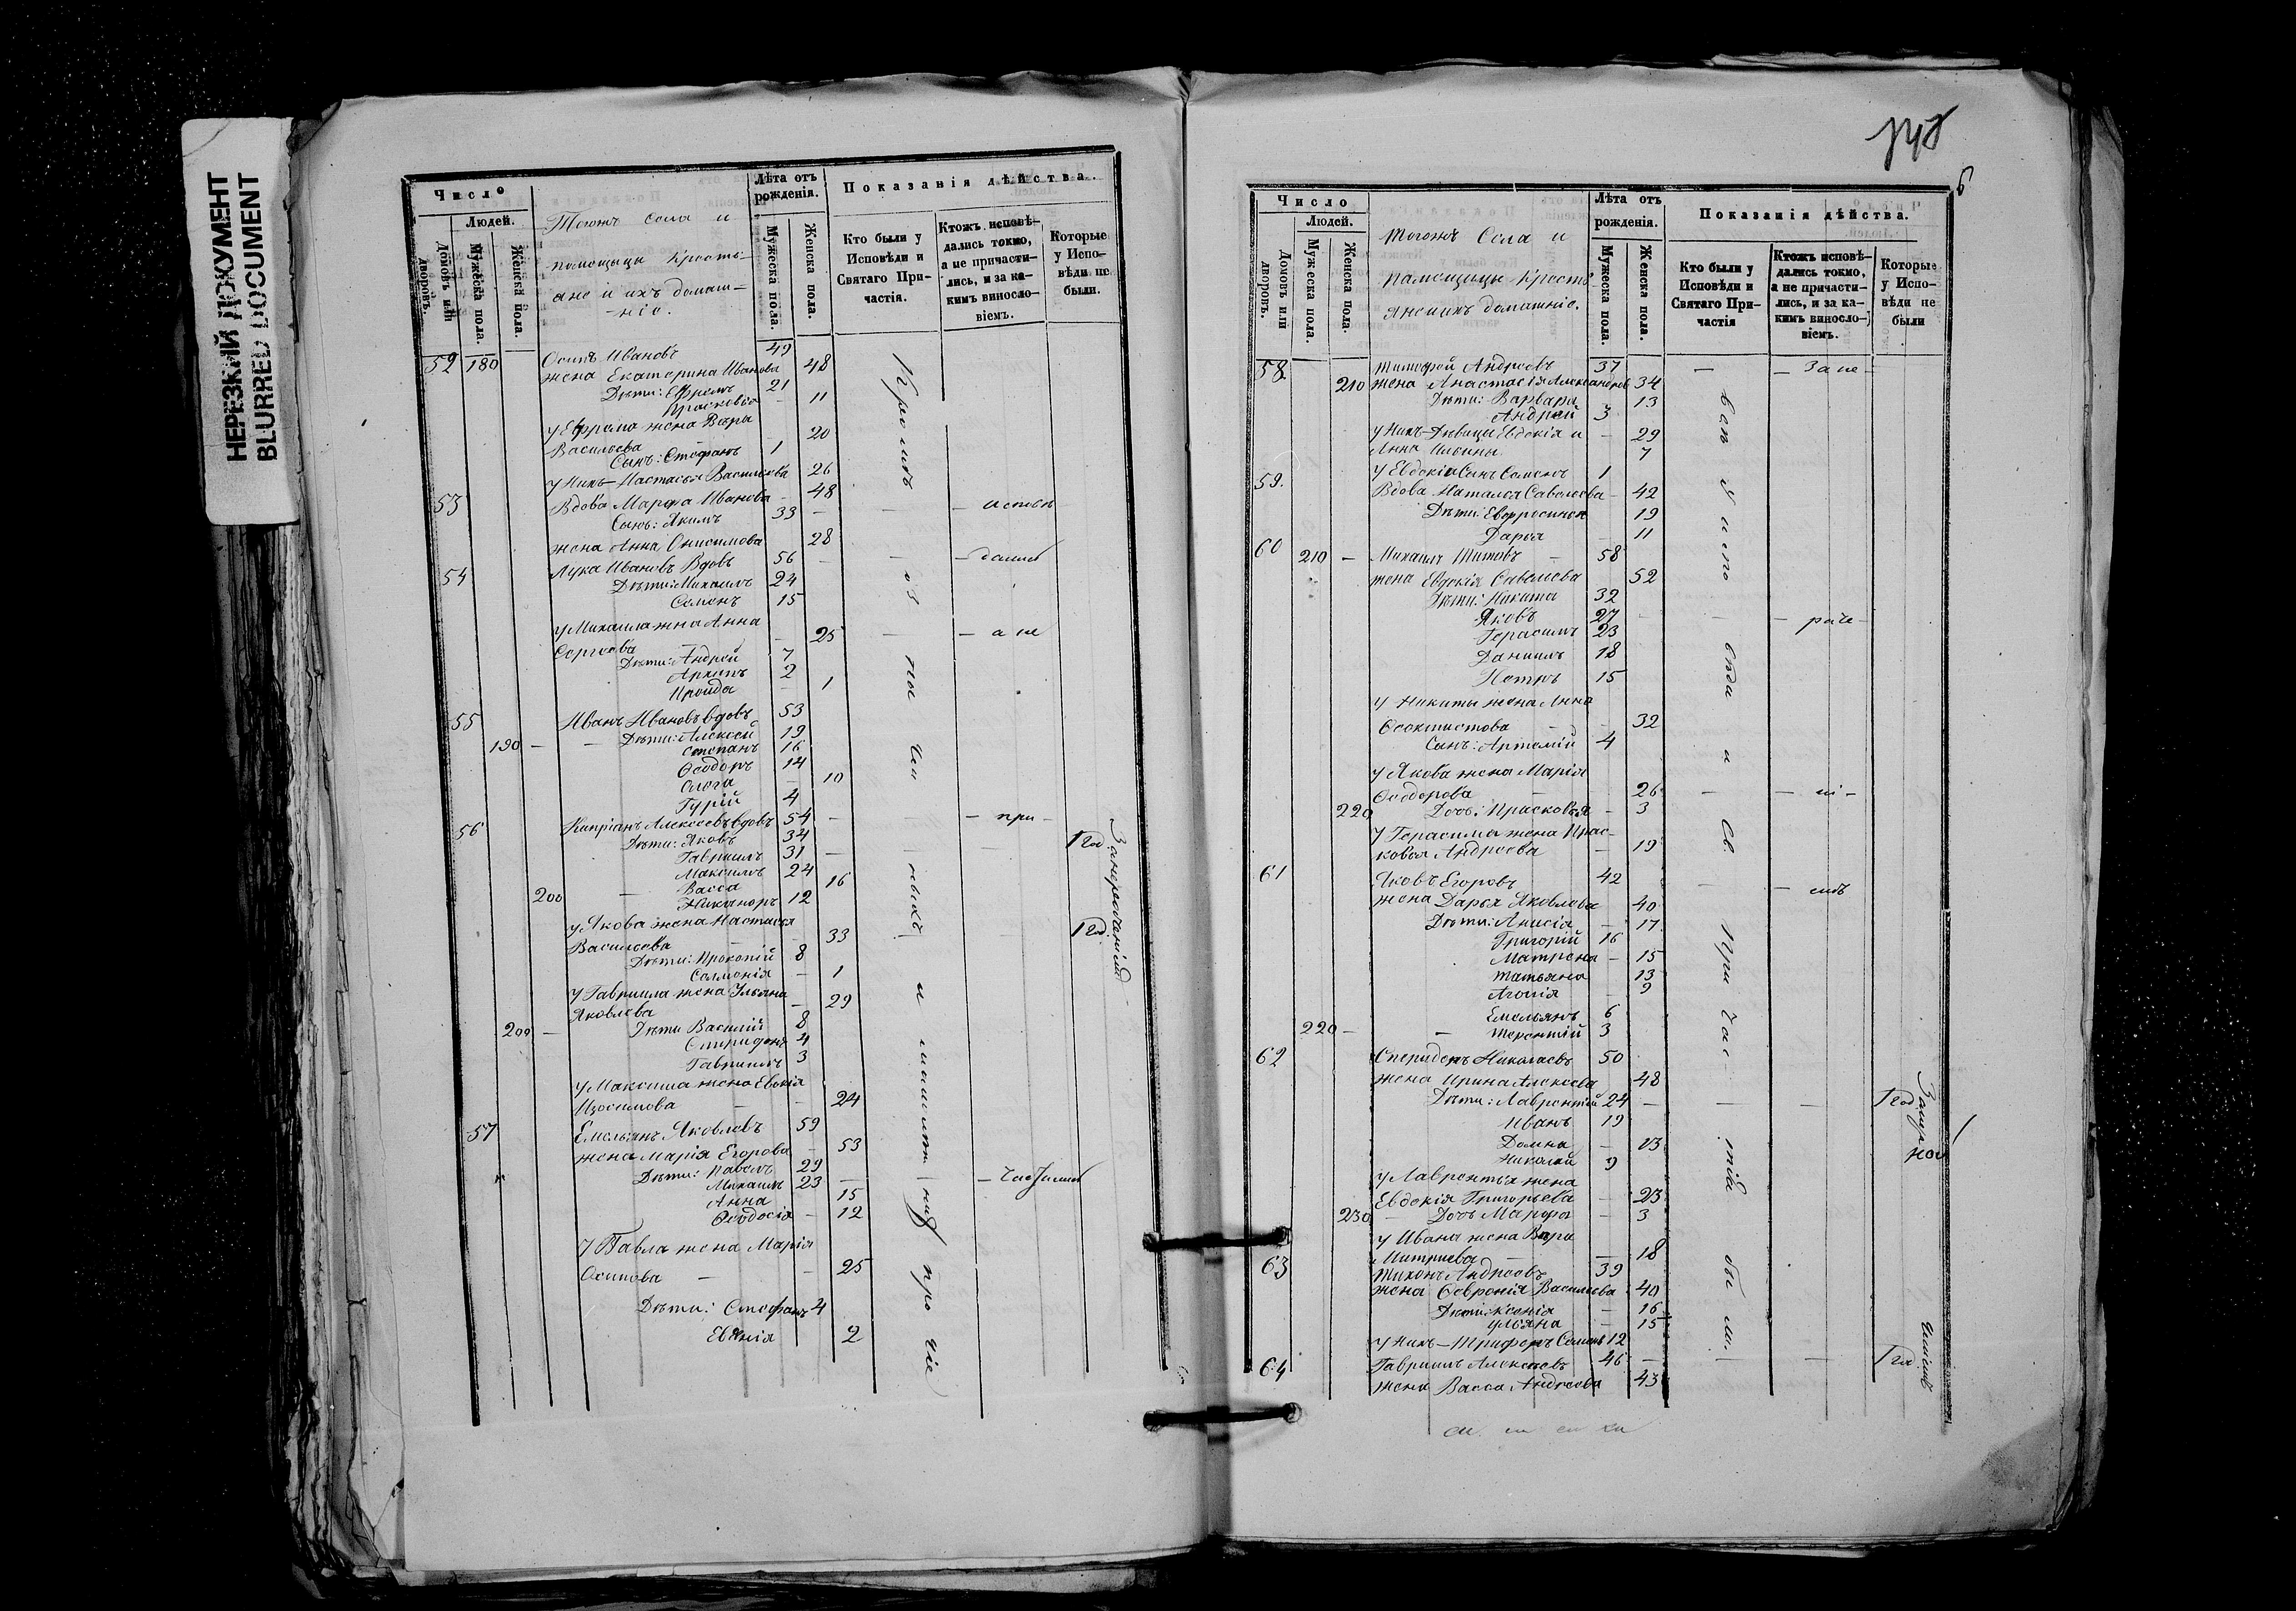 НЕРЕЗКИЙ ДОКУМЕНТ
BLURRED DOCUMENT
Число
Людей.
Домовъ или дворовъ.
Мужеска пола.
Женска пола.
Тогожъ села и
помещицы кресть-
ане и ихъ домаш-
ніе.
Лѣта отъ рожденія.
Мужеска пола.
Женска пола.
Показанія дѣйства.
Кто были у Исповѣди и Святаго При-частія.
Ктожъ исповѣ-дались токмо, а не причасти-лись, и за ка-кимъ винносло-віемъ.
Которые у Испо-вѣди не были.
52 180 Осипъ Ивановъ 49
жена Екатерина Иванова 48
Дѣти: Ефремъ 21
Прасковья - 11
у Ефрема жена Вѣра
Васильева 20
Сынъ: Стефанъ 1
у Нихъ - Настасья Васильева 26
53 Вдова Марѳа Иванова - 48
Сынъ: Якимъ 33
жена Анна Онисимова 28
54 Лука Ивановъ Вдовъ 56
Дѣти: Михаилъ 24
Семенъ 15
у Михаила жена Анна
Сергеева - 25
Дѣти: Андрей 7
Архипъ 2
Ироида - 1
55 Иванъ Ивановъ вдовъ 53
190 - - Дѣти: Алексей 19
Степанъ 16
Ѳеодоръ 14
Ольга - 10
Гурій 4
56 Кипріанъ Алексеевъ вдовъ 54
Дѣти: Яковъ 34
Гавриилъ 31
Максимъ 24
Васса 16
200 - Никаноръ 12
у Якова жена Настасья
Васильева - 33
Дѣти: Прокопій 8
Соломонія - 1
у Гавриила жена Ульяна
Яковлева - 29
200 - Дѣти Василій 8
Спиридонъ 4
Гавриилъ 3
у Максима жена Евдокія
Изосимова - 24
57 Емельянъ Яковлевъ 59
жена Марія Егорова - 53
Дѣти: Павелъ 29
Михаилъ 23
Анна 15
Ѳеодосія - 12
У Павла жена Марія
Осипова - - 25
Дѣти: Стефанъ 4
Евдокія 2
Кромѣ
испов
дались
а не
при
1 год
1 год.
и малолѣт
про чіе
148
6
Число
Людей.
Домовъ или дворовъ.
Мужеска пола.
Женска пола.
Тогожъ Села и
помещицы кресть
яне и ихъ домашніе.
Лѣта отъ рожденія.
Мужеска пола.
Женска пола.
Показанія дѣйства.
Кто были у Исповѣди и Святаго При-частія
Ктожъ исповѣ-дались токмо, а не причасти-лись, и за ка-кимъ винносло-віемъ.
Которые у Испо-вѣди не были
58 Тимофей Андреевъ 37 - - За не -
210 жена Анастасія Александров 34
Дѣти: Варвара - 13
Андрей 3
у Нихъ - Дѣвицы Евдокія и - 29
Анна Ивоины 7
у Евдокіи Сынъ Семенъ 1
59. Вдова Наталья Савельева - 42
Дѣти: Евфросинья 19
Дарья 11
60 210 - Михаилъ Титовъ - 58
жена Евдокія Савельева 52
Дѣти: Никита 32
Яковъ 27
Герасимъ 23
Даниилъ 18
Петръ 15
у Никиты жена Анна
Ѳеоктистова - 32
Сынъ: Артемій 4
у Якова жена Марія
Ѳеодорова - 26
220 Дочь: Прасковья - 3
у Герасима жена Прас-
ковья Андреева - 19
61 Яковъ Егоровъ 42
жена Дарья Яковлева 40
Дѣти: Анисія - 17
Григорій 16
Матрона - 15
Татьяна 13
Агафія - 9
Емельянъ 6
220 - - Терентій 3
62 Спиридонъ Николаевъ 50
жена Ирина Алексеева 48
Дѣти: Лаврентій 24 - - - 1 год
Иванъ 19
Домна - 23
Николай 9
у Лаврентья жена
Евдокія Григорьева - 23
230 - Дочь Марѳа - 3
у Ивана жена Вѣра
Митриева - 18
63 Тихонъ Андреевъ 39
жена Ѳевронія Васильева 40
Дѣти: Ксенія - 16
Ульяна - 15
у Нихъ - Трифонъ Семенъ 12
64 Гавриилъ Алексѣевъ 46 - - 1 год.
жена Васса Андреева 43
вѣди
и
Св.
При
час-
тія
бы
ли.